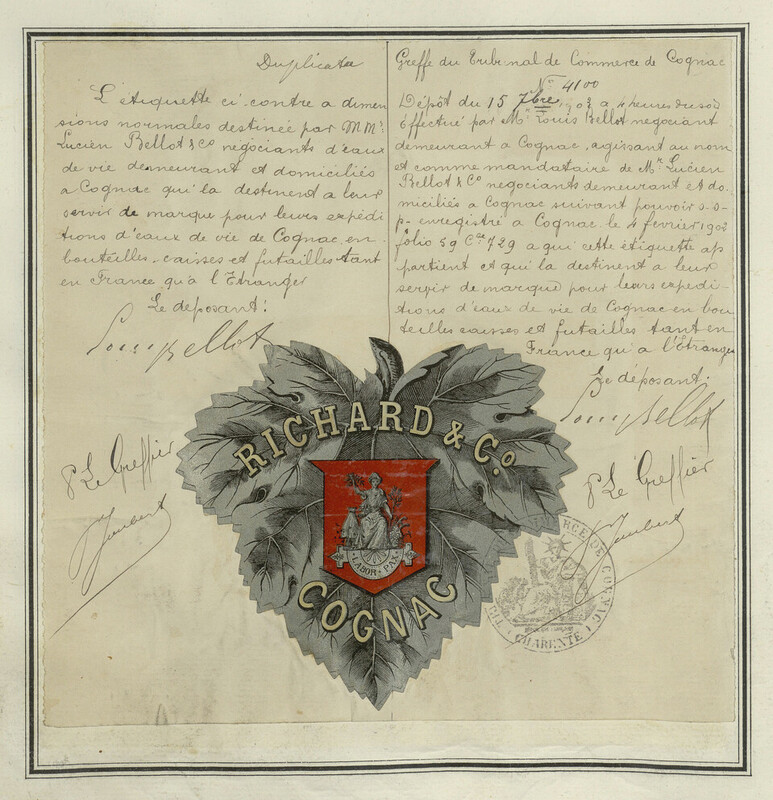 Duplicata
L'étiquette ci-contre a dimen
sions normales destinée par MMrs
Lucien Bellot & Co négociants d'eaux
de vie demeurant et domiciliés
a Cognac qui la destinent a leur
servir de marque pour leurs expédi
tions d'eaux de vie de Cognac en
bouteilles caisses et futailles tant
en France qu'a l'Etranger
Le déposant:
Louis Bellot
Pr Le Greffier
Greffe du Tribunal de Commerce de Cognac
No 4100
Dépôt du 15 7bre 1903 a 4 heures du soir
Effectué par Mr Louis Bellot négociant
demeurant a Cognac, agissant au nom
et comme mandataire de Mr Lucien
Bellot & Co négociants demeurant et do
miciliés a Cognac suivant pouvoir s-s-
p- enregistré a Cognac le 4 février 190
folio 59 Ce 729 a qui cette étiquette ap
partient et qui la destinent a leur
servir de marque pour leurs expédi
tions d'eaux de vie de Cognac en bou
teilles caisses et futailles tant en
France qu'a l'Etranger
Le déposant:
Louis Bellot
Pr Le Greffier
RICHARD & Co
LABOR PAX
COGNAC
COMMERCE DE COGNAC
CHARENTE